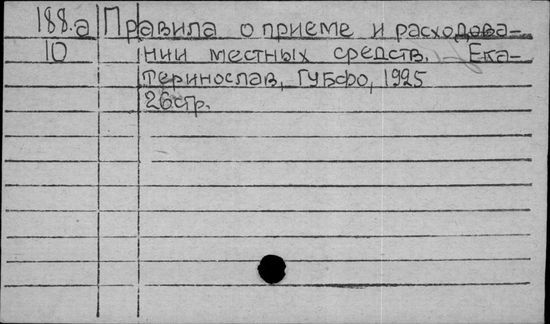 188.а Правила о приеме и расходова-
10 нии местных средств. Ека-
теринослав, Губфо, 1925
26стр.